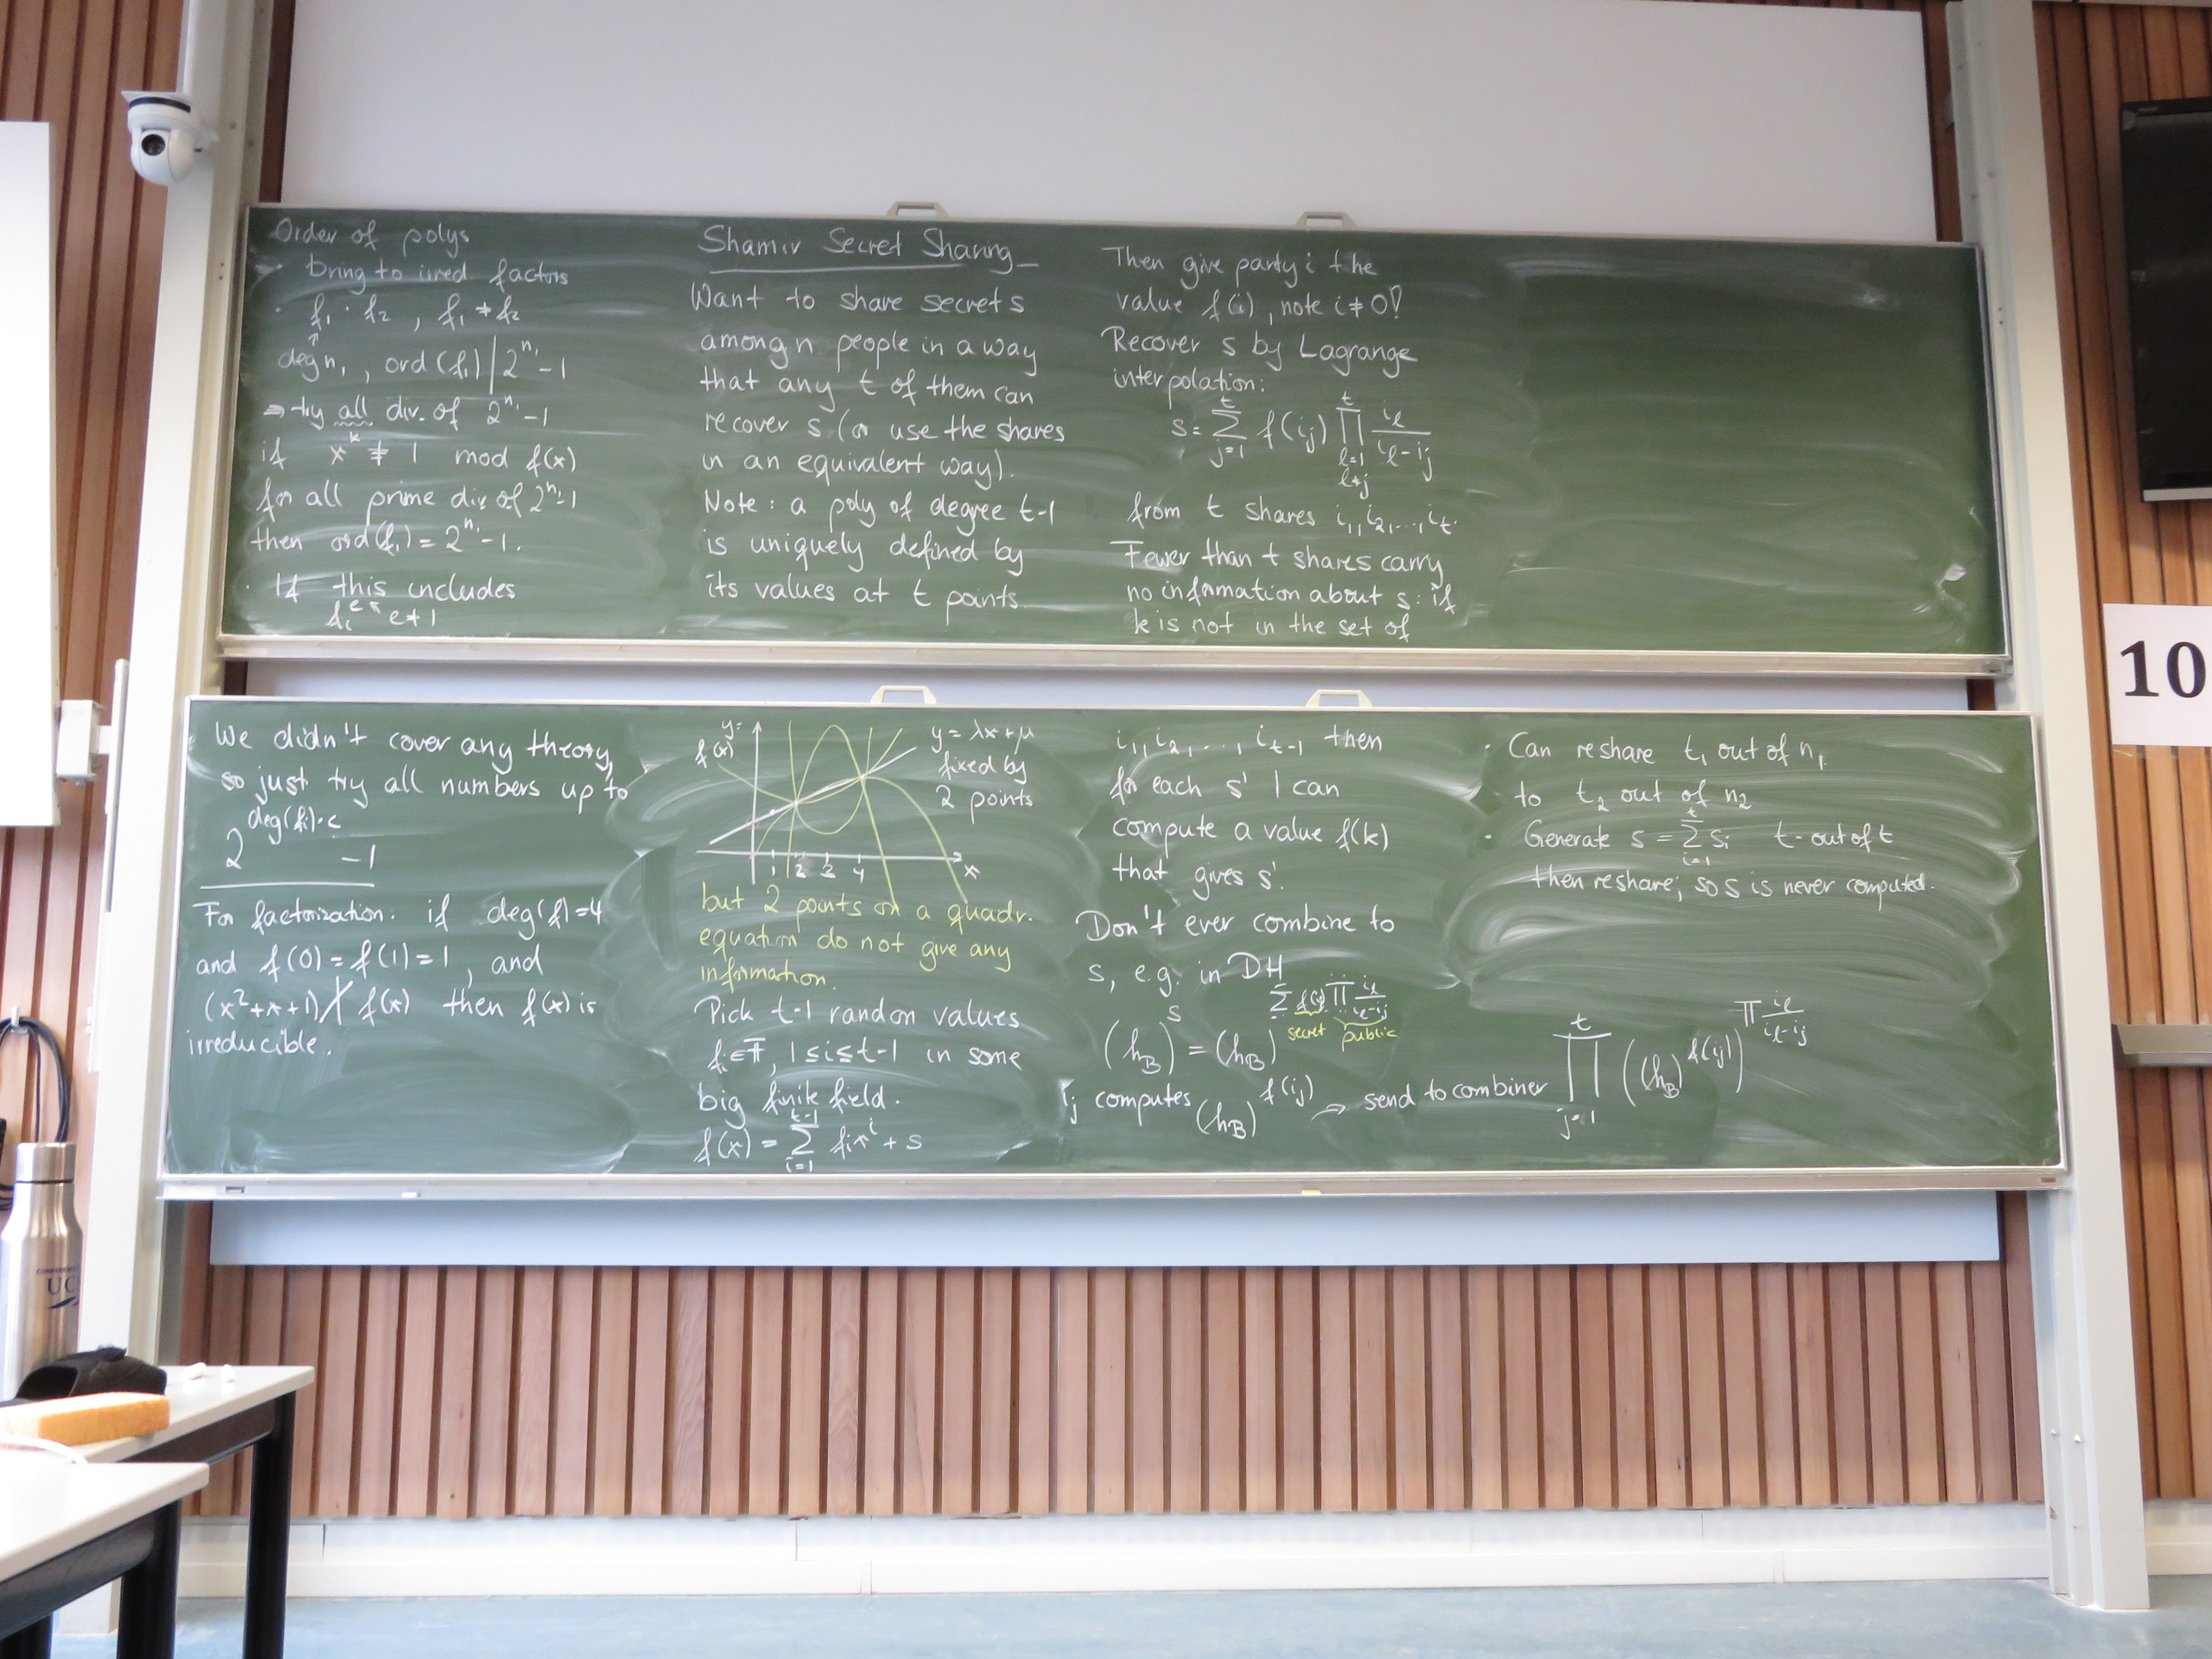 Order of polys
· bring to irred. factors
· f₁ · f₂ , f₁ ≠ f₂
↑
deg n₁ , ord (f₁) | 2^n₁ - 1
⇒ try all div. of 2^n₁ - 1
if x^k ≢ 1 mod f(x)
for all prime div of 2^n₁ - 1
then ord(f₁) = 2^n₁ - 1.
· If this includes
fᵢ^e e ≠ 1
We didn't cover any theory,
so just try all numbers up to
2^(deg(fᵢ)·e) - 1
For factorization. if deg(f)=4
and f(0) = f(1) = 1 , and
(x²+x+1) ∤ f(x) then f(x) is
irreducible.
Shamir Secret Sharing
Want to share secret s
among n people in a way
that any t of them can
recover s (or use the shares
in an equivalent way).
Note: a poly of degree t-1
is uniquely defined by
its values at t points
y=
f(x)
y = λx+μ
fixed by
2 points
1 2 3 4 x
but 2 points on a quadr.
equation do not give any
information.
Pick t-1 random values
fᵢ ∈ F, 1 ≤ i ≤ t-1 in some
big finite field.
f(x) = Σ_{i=1}^{t-1} fᵢ xⁱ + s
Then give party i the
value f(i), note i ≠ 0!
Recover s by Lagrange
interpolation:
s = Σ_{j=1}^{t} f(i_j) Π_{l=1, l≠j}^{t} i_l / (i_l - i_j)
from t shares i₁, i₂, ..., i_t.
Fewer than t shares carry
no information about s: if
k is not in the set of
i₁, i₂, ..., i_{t-1} then
for each s' I can
compute a value f(k)
that gives s'.
Don't ever combine to
s, e.g. in DH
(h_B)^s = (h_B)^{Σ f(i_j) Π i_l / (i_l - i_j)}
secret public
i_j computes (h_B)^{f(i_j)} → send to combiner Π_{j=1}^{t} ((h_B)^{f(i_j)})^{Π i_l / (i_l - i_j)}
· Can reshare t₁ out of n₁
to t₂ out of n₂
· Generate s = Σ_{i=1}^{t} sᵢ t-out of t
then reshare; so s is never computed.
10